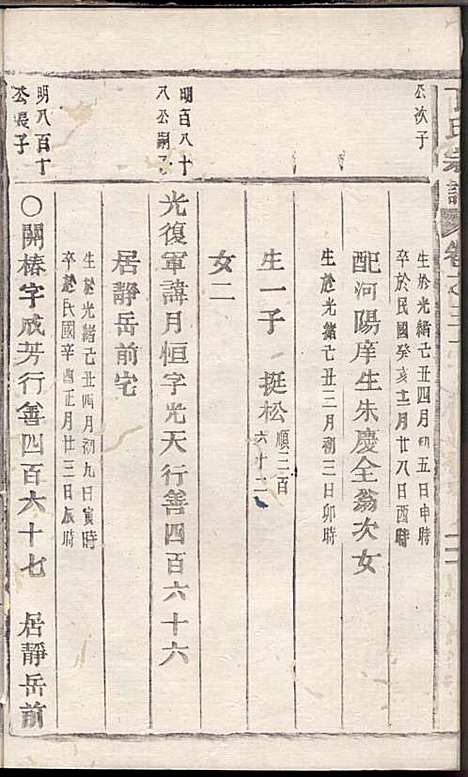 氏宗譜 卷之二十
公次子
生於光緒己丑四月初五日申時
卒於民國癸亥十二月廿八日酉時
配河陽庠生朱慶全翁次女
生於光緒己丑三月初三日卯時
生一子 挺松 順三百六十二
女二
明百八十八公嗣子
光復軍諱月恒字光天行善四百六十六
居靜岳前宅
生於光緒己丑四月初九日寅時
卒於民國辛酉正月廿三日辰時
明八百十公長子
○開椿字成芳行善四百六十七 居靜岳前